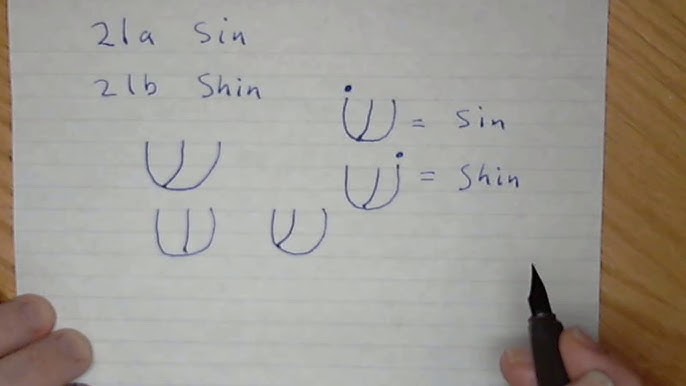 21a Sin
21b Shin
שׂ = Sin
שׁ = Shin
ש
ש ש